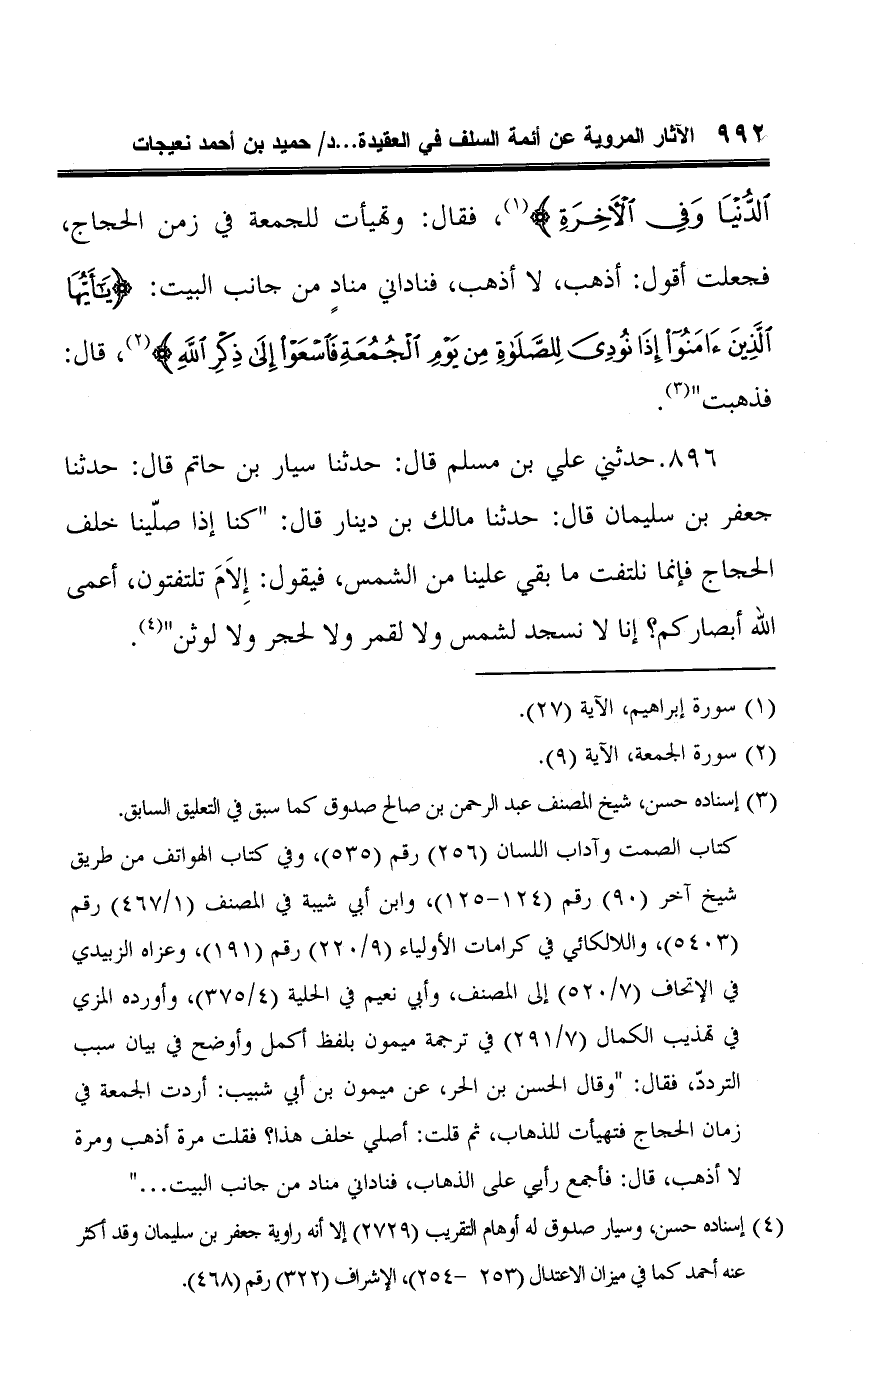 ٩٩٢ الآثار المروية عن أئمة السلف في العقيدة...د/ حميد بن أحمد نعيجات
ٱلدُّنْيَا وَفِي ٱلْأَخِرَةِ ﴾(١)، فقال: وتهيأت للجمعة في زمن الحجاج،
فجعلت أقول: أذهب، لا أذهب، فناداني منادٍ من جانب البيت: ﴿يَٰٓأَيُّهَا
ٱلَّذِينَ ءَامَنُوٓاْ إِذَا نُودِىَ لِلصَّلَوٰةِ مِن يَوْمِ ٱلْجُمُعَةِ فَٱسْعَوْاْ إِلَىٰ ذِكْرِ ٱللَّهِ ﴾(٢)، قال:
فذهبت"(٣).
٨٩٦.حدثني علي بن مسلم قال: حدثنا سيار بن حاتم قال: حدثنا
جعفر بن سليمان قال: حدثنا مالك بن دينار قال: "كنا إذا صلّينا خلف
الحجاج فإنما نلتفت ما بقي علينا من الشمس، فيقول: إِلاَمَ تلتفتون، أعمى
الله أبصاركم؟ إنا لا نسجد لشمس ولا لقمر ولا لحجر ولا لوثن"(٤).
(١) سورة إبراهيم، الآية (٢٧).
(٢) سورة الجمعة، الآية (٩).
(٣) إسناده حسن، شيخ المصنف عبد الرحمن بن صالح صدوق كما سبق في التعليق السابق.
كتاب الصمت وآداب اللسان (٢٥٦) رقم (٥٣٥)، وفي كتاب الهواتف من طريق
شيخ آخر (٩٠) رقم (١٢٤-١٢٥)، وابن أبي شيبة في المصنف (٤٦٧/١) رقم
(٥٤٠٣)، واللالكائي في كرامات الأولياء (٢٢٠/٩) رقم (١٩١)، وعزاه الزبيدي
في الإتحاف (٥٢٠/٧) إلى المصنف، وأبي نعيم في الحلية (٣٧٥/٤)، وأورده المزي
في تهذيب الكمال (٢٩١/٧) في ترجمة ميمون بلفظ أكمل وأوضح في بيان سبب
التردد، فقال: "وقال الحسن بن الحر، عن ميمون بن أبي شبيب: أردت الجمعة في
زمان الحجاج فتهيأت للذهاب، ثم قلت: أصلي خلف هذا؟ فقلت مرة أذهب ومرة
لا أذهب، قال: فأجمع رأيي على الذهاب، فناداني مناد من جانب البيت..."
(٤) إسناده حسن، وسيار صدوق له أوهام التقريب (٢٧٢٩) إلا أنه راوية جعفر بن سليمان وقد أكثر
عنه أحمد كما في ميزان الاعتدال (٢٥٣ -٢٥٤)، الإشراف (٣٢٢) رقم (٤٦٨).